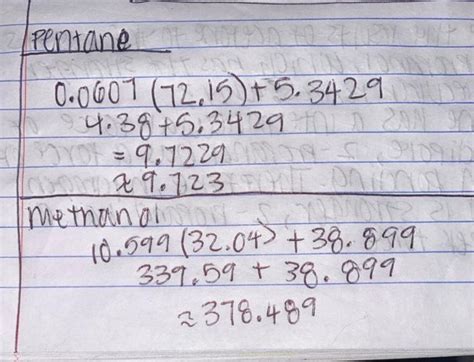 Pentane
0.0607 (72.15) + 5.3429
4.38 + 5.3429
= 9.7229
≈ 9.723
Methanol
10.599 (32.04) + 38.899
339.59 + 38.899
≈ 378.489